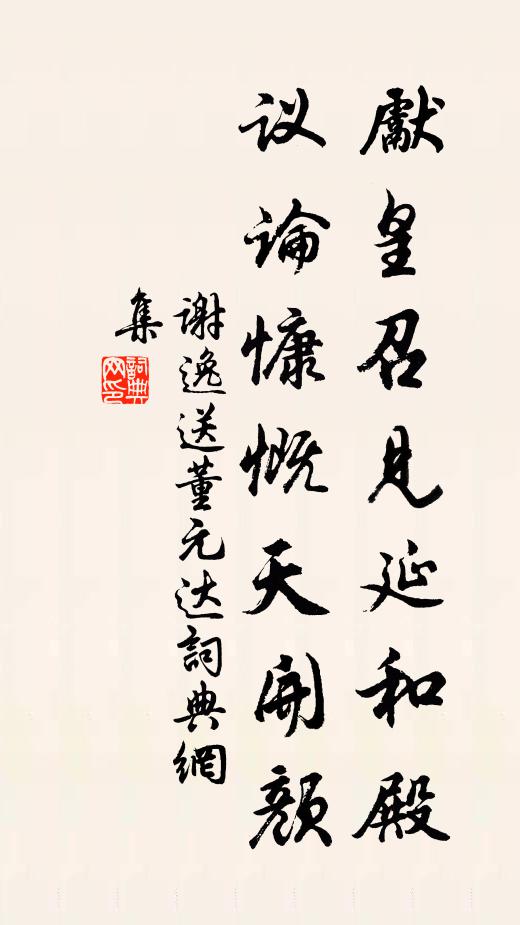 獻皇召見延和殿
议論慷慨天開顏
謝逸送董元达詞典網
集
詞典
网印